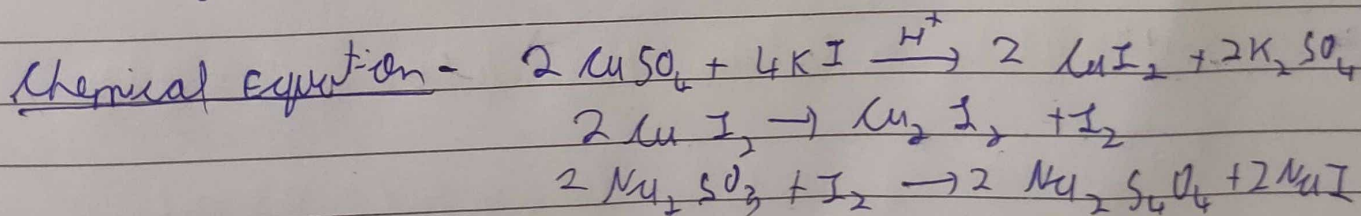 Chemical Equation - 2 CuSO₄ + 4KI —H⁺→ 2 CuI₂ + 2K₂SO₄
2 CuI₂ → Cu₂I₂ + I₂
2 Na₂SO₃ + I₂ → 2 Na₂S₄O₄ + 2NaI